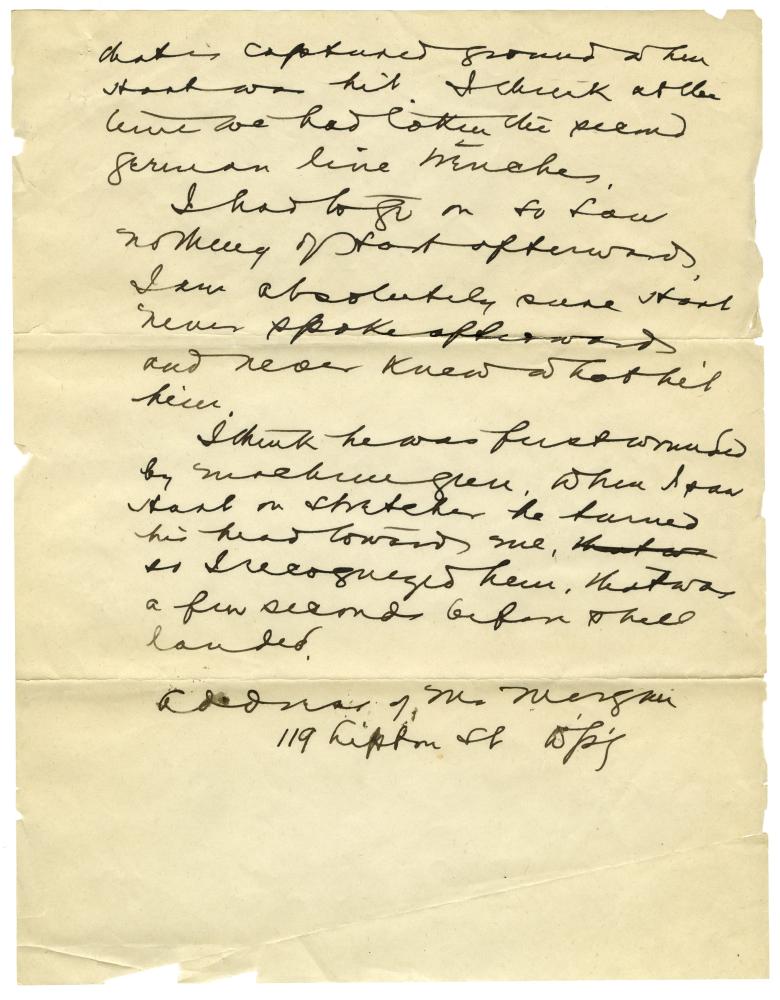 that is captured ground when
Hart was hit. I think at the
time we had taken the second
german line trenches.
I had to go on so saw
nothing of Hart afterwards,
I am absolutely sure Hart
never spoke afterwards
and never knew what hit
him.
I think he was first wounded
by machine gun. When I saw
Hart on stretcher he turned
his head towards me, that was
so I recognized him. that was
a few seconds before shell
landed.
Address of Mr Morgan
119 Lipton St W'p'g